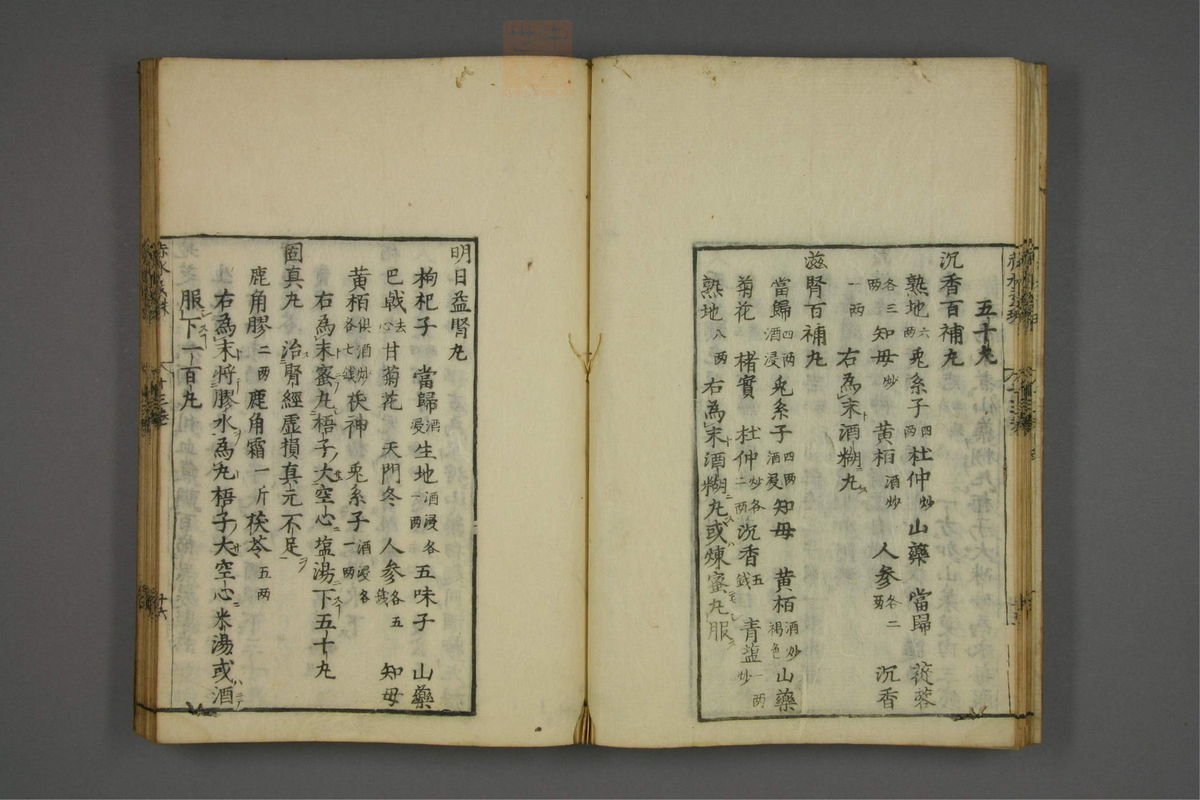 五十丸
沉香百補丸
熟地六两兎糸子四两杜仲炒山藥當歸蓯蓉
各三两知母炒黄栢酒炒人参各二两沉香
一两右為末酒糊丸
滋腎百補丸
當歸四两酒浸兎糸子四两酒浸知母黄栢酒炒褐色山藥
菊花楮實杜仲炒各二两沉香五錢青塩炒一两
熟地八两右為末酒糊丸或煉蜜丸服
明目益腎丸
枸杞子當歸酒浸生地酒浸各一两五味子山藥
巴戟去心甘菊花天門冬人参各五錢知母
黄栢俱酒炒各七錢茯神兎糸子酒浸各一两
右為末蜜丸梧子大空心塩湯下五十丸
固真丸治腎經虚損真元不足
鹿角膠二两鹿角霜一斤茯苓五两
右為末将膠水為丸梧子大空心米湯或酒
服下一百丸
十三卷
十六